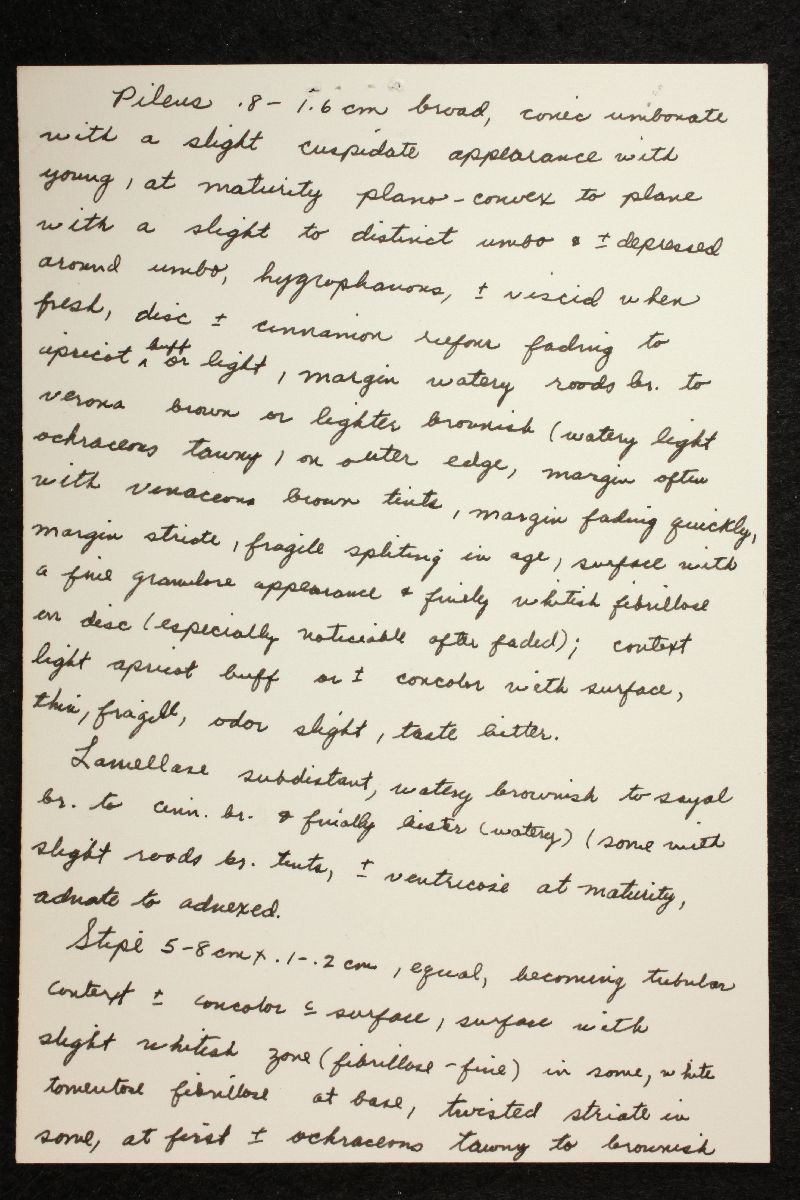 Pileus .8 - 1.6 cm broad, conic umbonate
with a slight cuspidate appearance with
young, at maturity plano-convex to plane
with a slight to distinct umbo & ± depressed
around umbo, hygrophanous, ± viscid when
fresh, disc ± cinnamon rufous fading to
apricot buff or light, margin watery roods br. to
verona brown or lighter brownish (watery light
ochraceous tawny) on outer edge, margin often
with venaceous brown tints, margin fading quickly,
margin striate, fragile spliting in age, surface with
a fine granulose appearance & finely whitish fibrillose
on disc (especially noticiable after faded); context
light apricot buff or ± concolor with surface,
thin, fragile, odor slight, taste bitter.
Lamellase subdistant, watery brownish to sayal
br. to cinn. br. & finally bister (watery) (some with
slight roods br. tints, ± ventricose at maturity,
adnate to adnexed.
Stipe 5-8 cm x .1-.2 cm, equal, becoming tubular
context ± concolor c̄ surface, surface with
slight whitish zone (fibrillose-fine) in some, white
tomentose fibrillose at base, twisted striate in
some, at first ± ochraceous tawny to brownish